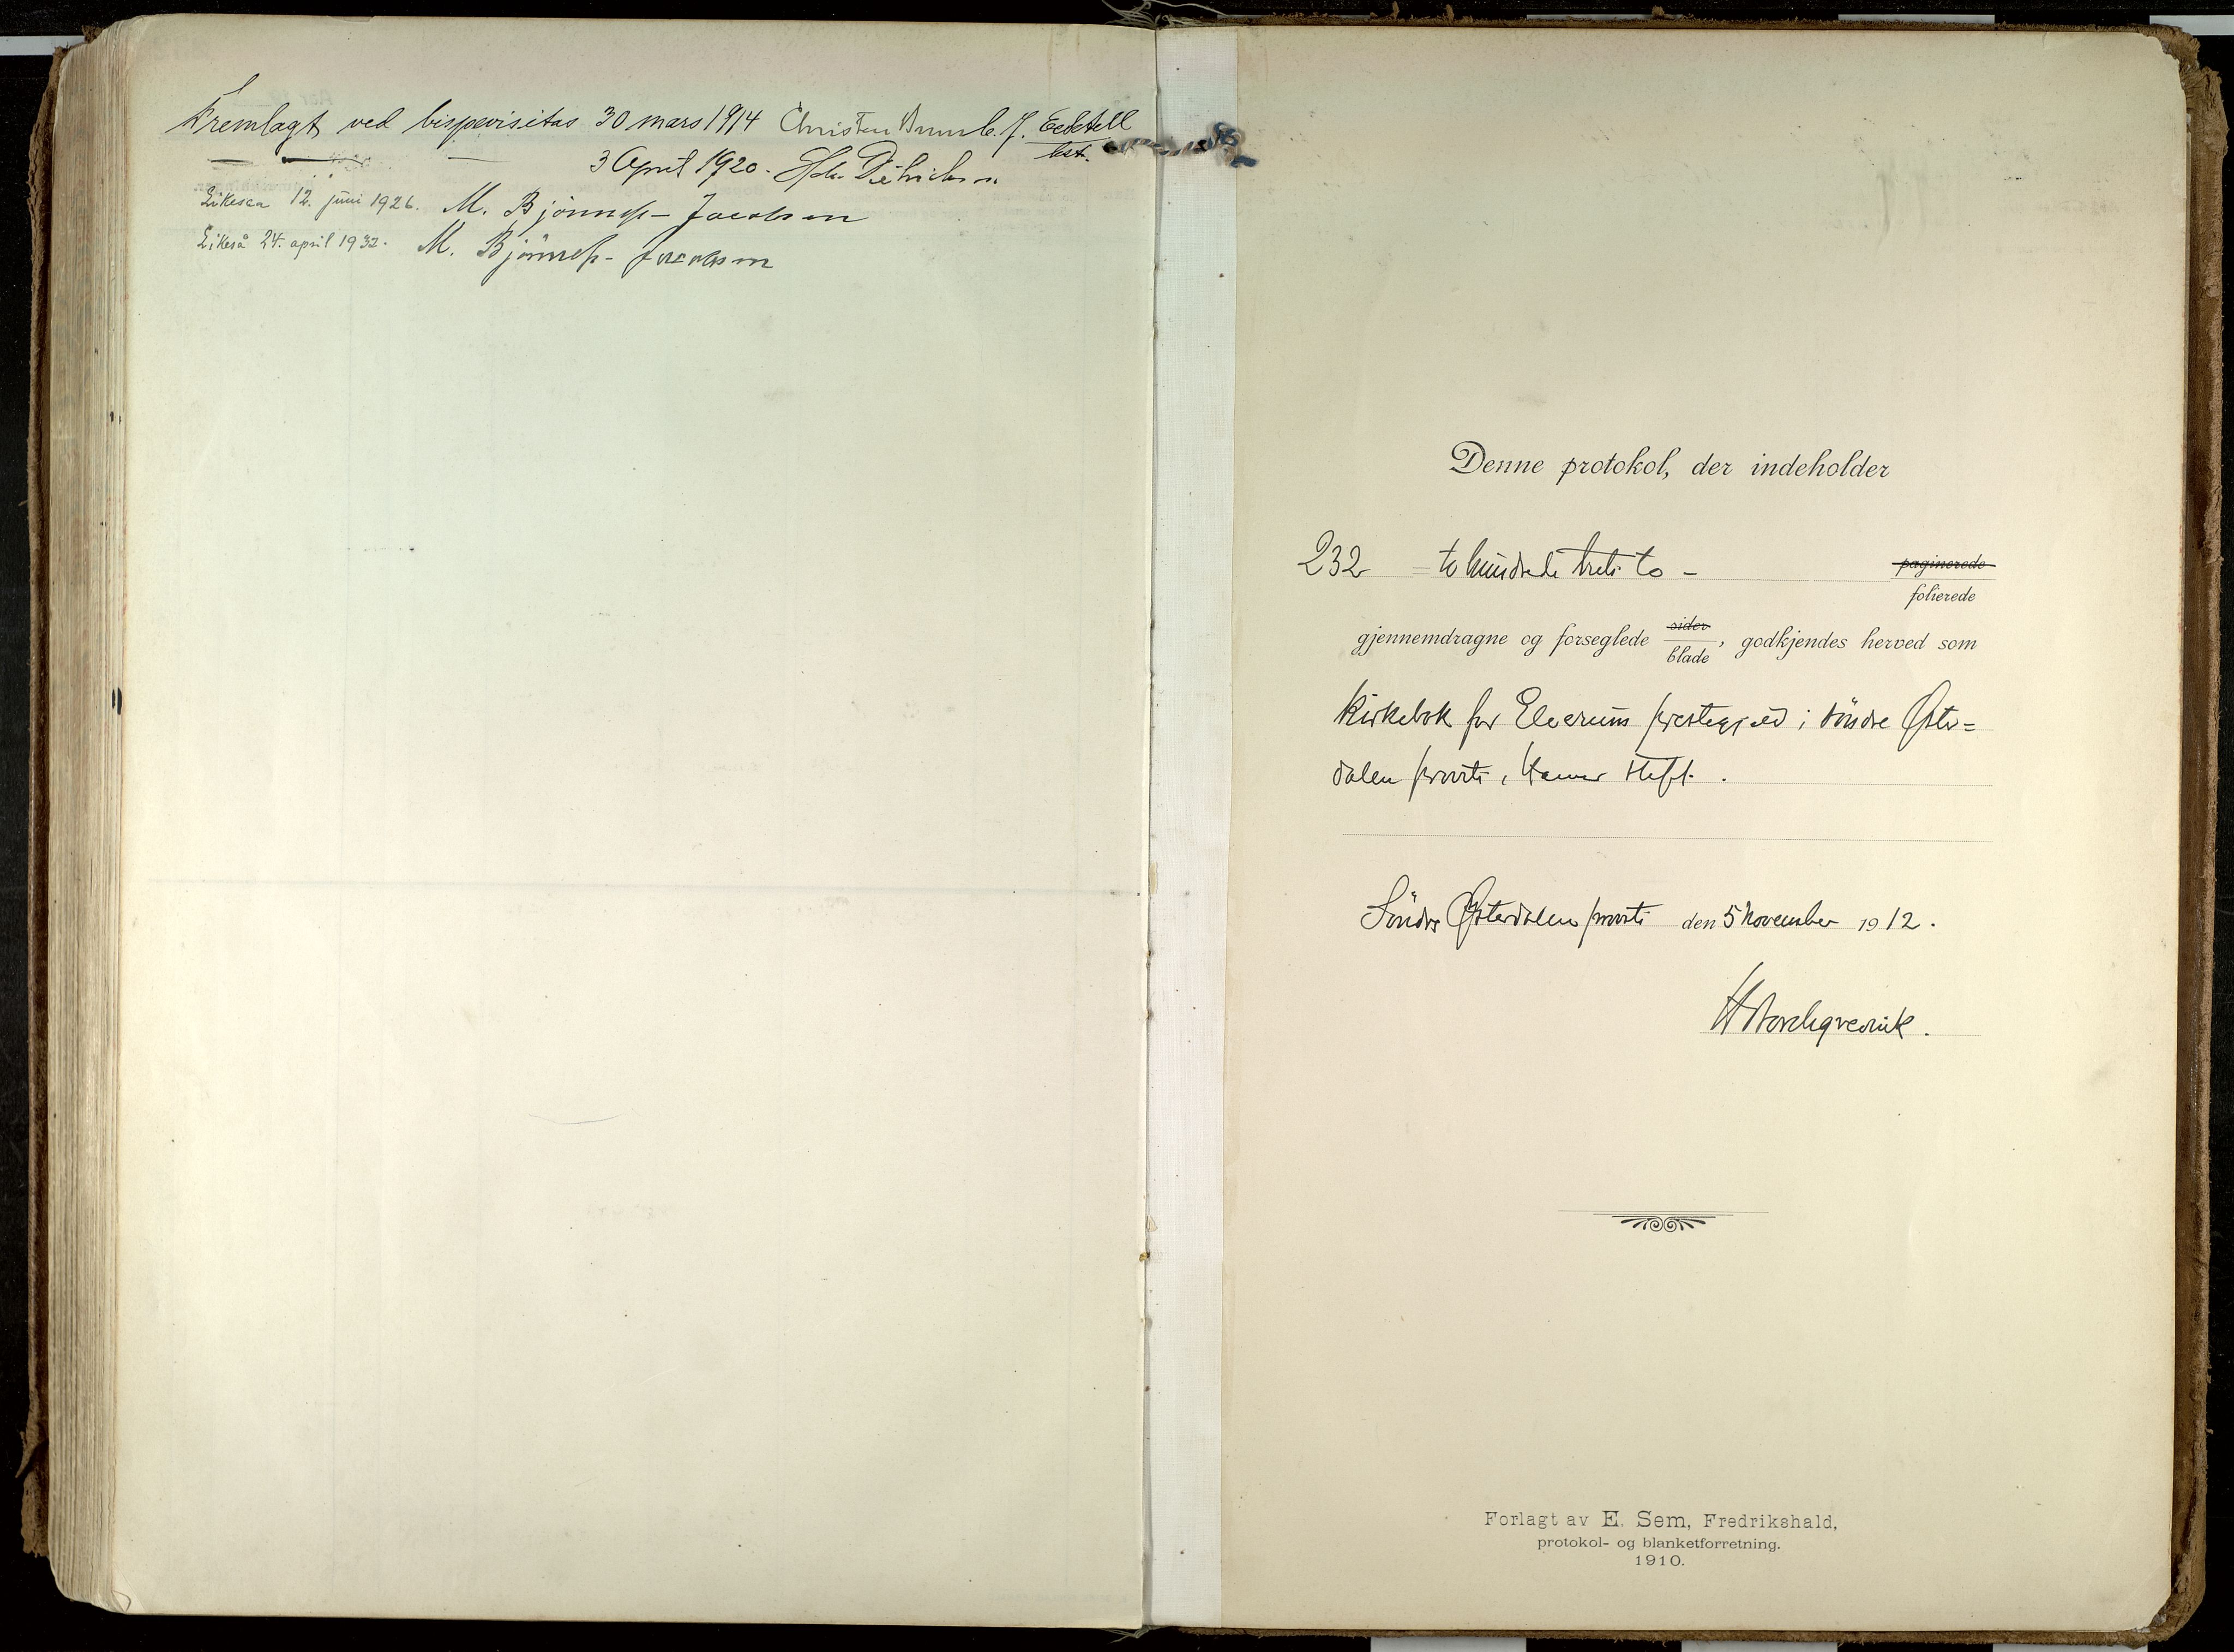 Fremlagt ved bispevisitas 30 mars 1914 Christen Brun b. J.
— — — 3 April 1920.
Likesaa 12. juni 1926. M. Bjönness-Jacobsen
Likeså 24. april 1932. M. Bjönness-Jacobsen
Denne protokol, der indeholder
232 = to hundrede treti to — paginerede
folierede
gjennemdragne og forseglede sider
blade, godkjendes herved som
Kirkebok for Elverum prestegjeld i söndre Øster=
dalen provsti, Hamar stift.
Söndre Østerdalen provsti den 5 November 1912.
Forlagt av E. Sem, Fredrikshald,
protokol- og blanketforretning.
1910.